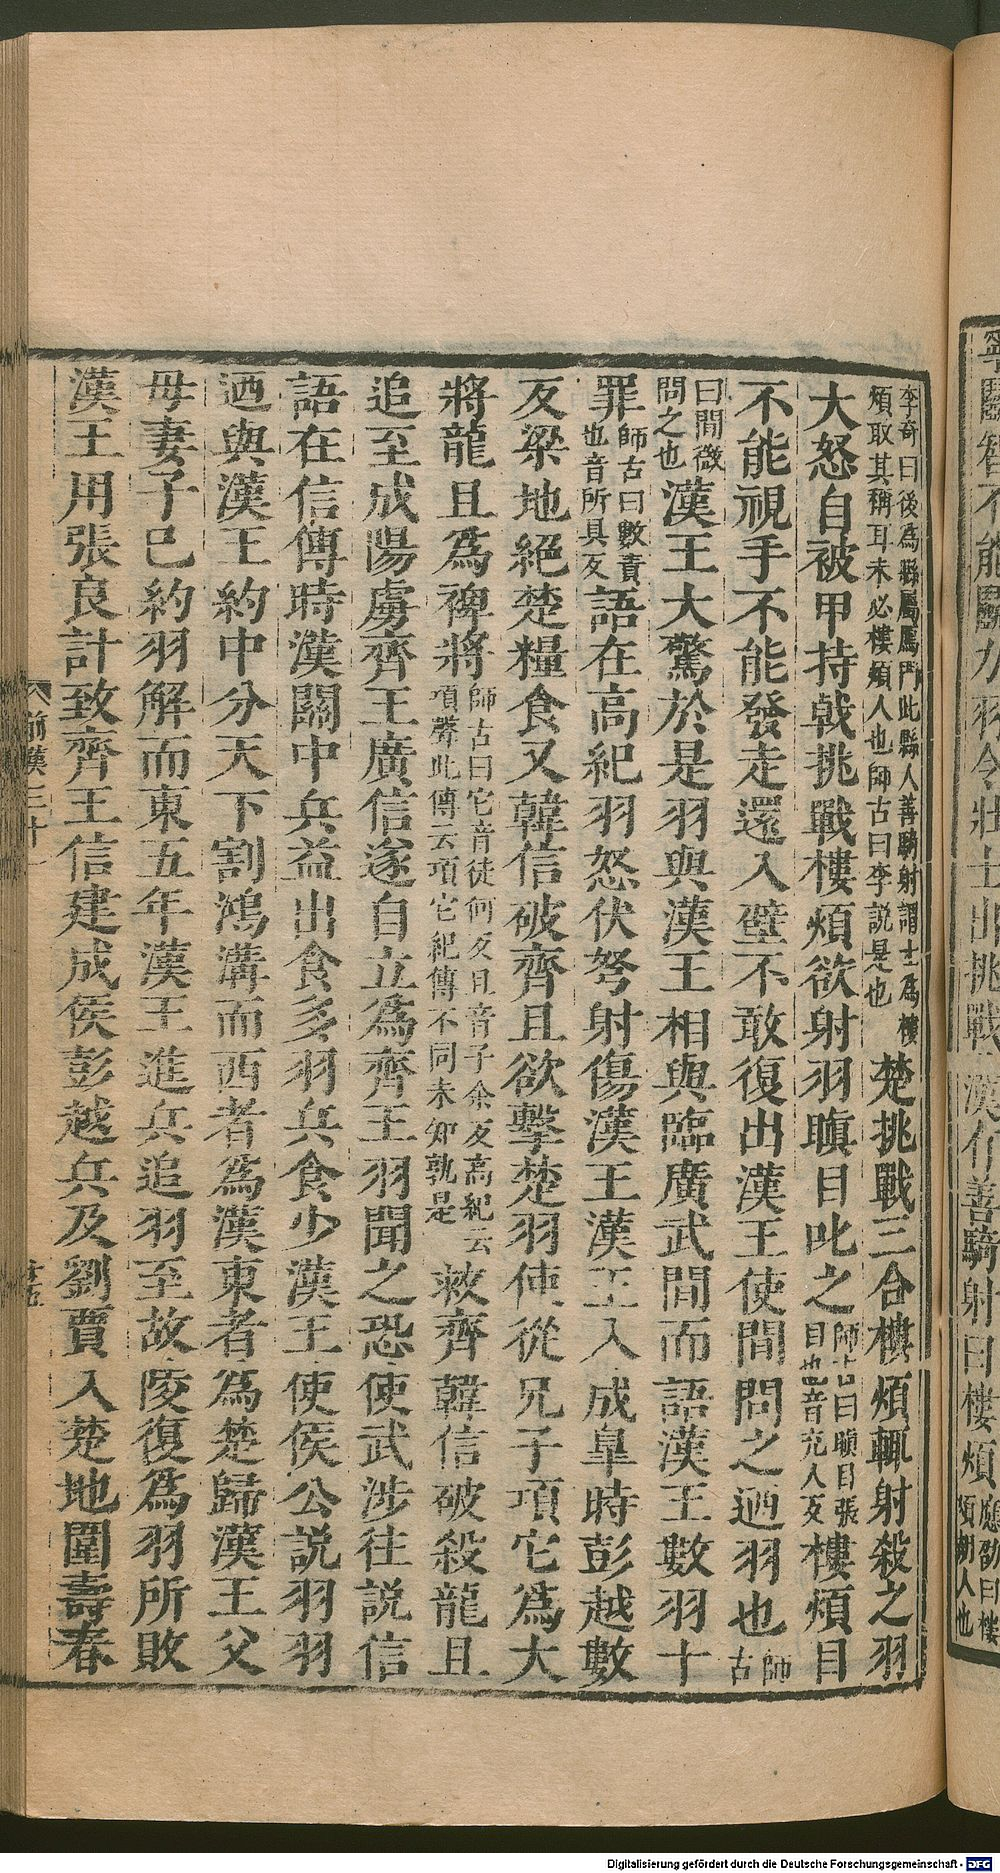 寧鬬智不能鬬力羽令壯士出挑戰漢有善騎射曰樓煩應劭曰樓煩胡人也
李奇曰後爲縣屬鴈門此縣人善騎射謂士爲樓煩取其稱耳未必樓煩人也師古曰李說是也楚挑戰三合樓煩輒射殺之羽
大怒自被甲持戟挑戰樓煩欲射羽瞋目叱之師古曰瞋目張目也音充人反樓煩目
不能視手不能發走還入壁不敢復出漢王使間問之迺羽也師古
曰間微問之也漢王大驚於是羽與漢王相與臨廣武間而語漢王數羽十
罪師古曰數責也音所具反語在高紀羽怒伏弩射傷漢王漢王入成皐時彭越數
反梁地絕楚糧食又韓信破齊且欲擊楚羽使從兄子項它爲大
將龍且爲裨將師古曰它音徒何反且音子余反高紀云項聲此傳云項它紀傳不同未知孰是救齊韓信破殺龍且
追至成陽虜齊王廣信遂自立爲齊王羽聞之恐使武涉往説信
語在信傳時漢關中兵益出食多羽兵食少漢王使侯公説羽羽
迺與漢王約中分天下割鴻溝而西者爲漢東者爲楚歸漢王父
母妻子已約羽解而東五年漢王進兵追羽至故陵復爲羽所敗
漢王用張良計致齊王信建成侯彭越兵及劉賈入楚地圍壽春
前漢三十一
十五
Digitalisierung gefördert durch die Deutsche Forschungsgemeinschaft - DFG